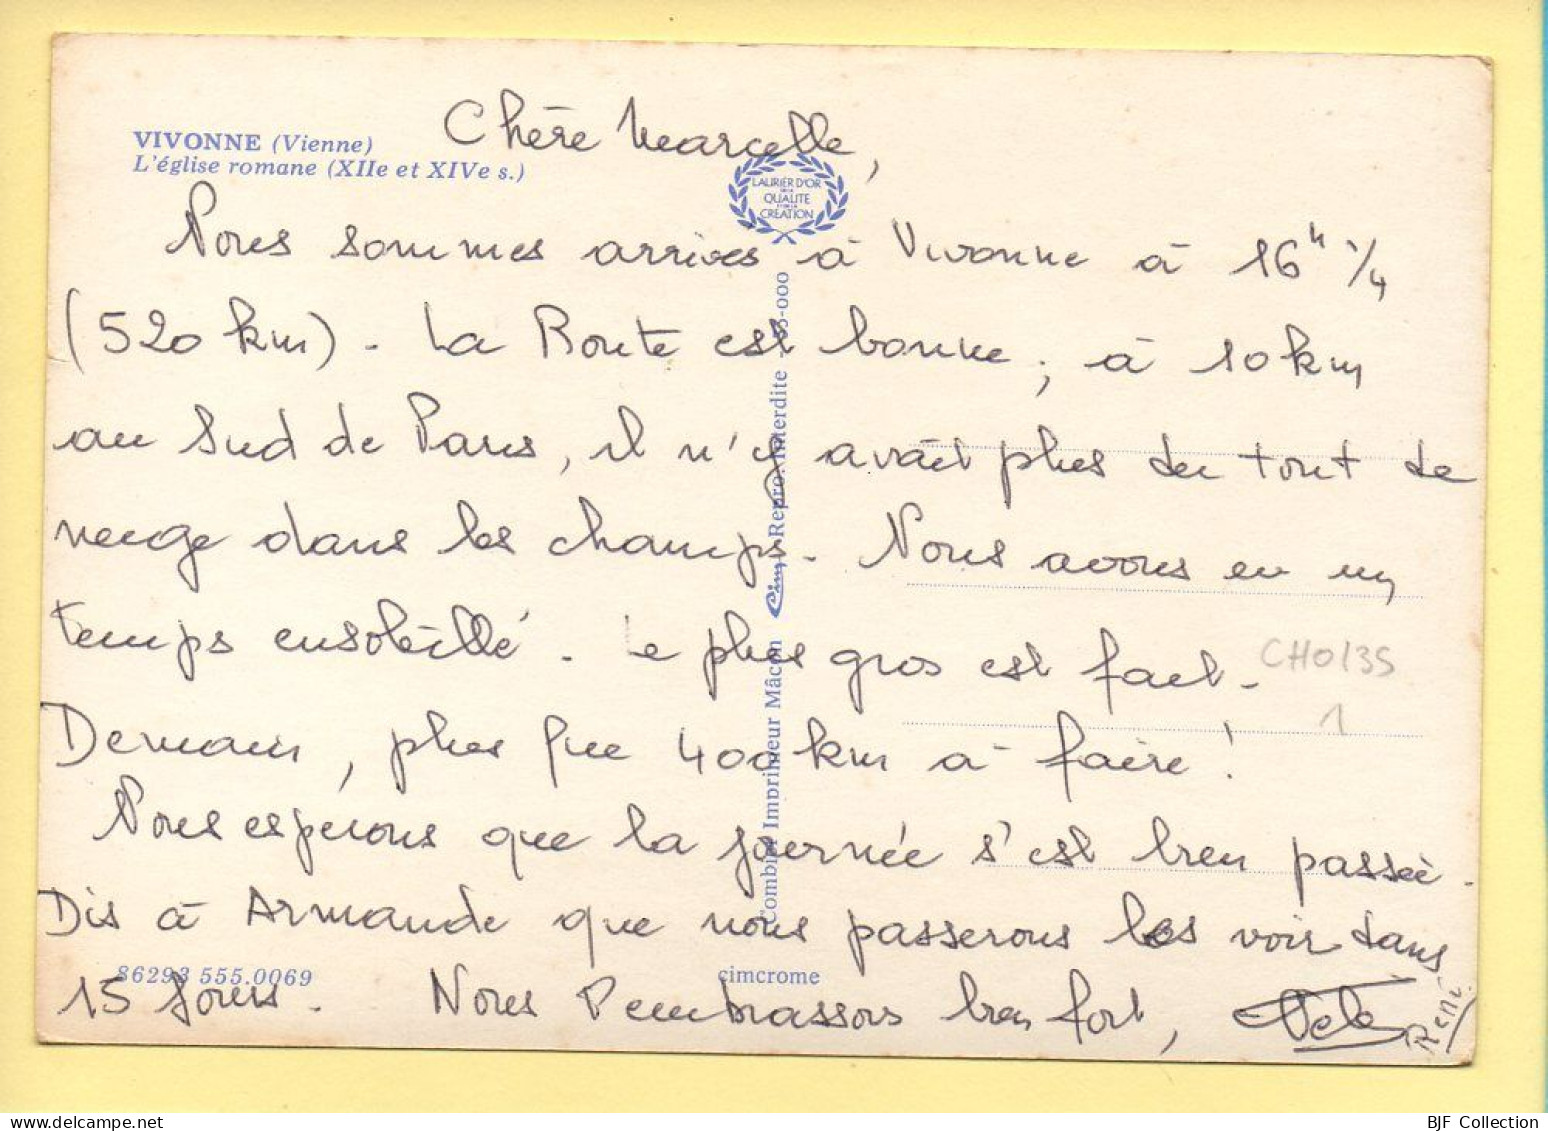 VIVONNE (Vienne)
L'église romane (XIIe et XIVe s.)
Chère Marcelle,
LAURIER D'OR
DE LA
QUALITÉ
ET DE LA
CRÉATION
Nous sommes arrivés à Vivonne à 16h 1/4
(520 km) - La Route est bonne ; à 10 km
au Sud de Paris, il n'y avait plus du tout de
neige dans les champs. Nous avons eu un
temps ensoleillé. Le plus gros est fait.
Demain, plus que 400 km à faire !
Nous espérons que la journée s'est bien passée.
Dis à Armande que nous passerons les voir dans
15 jours. Nous t'embrassons bien fort,
René
Combier Imprimeur Mâcon Cim Repro. Interdite -000
CH0135
1
86293 555.0069
cimcrome
BJF Collection